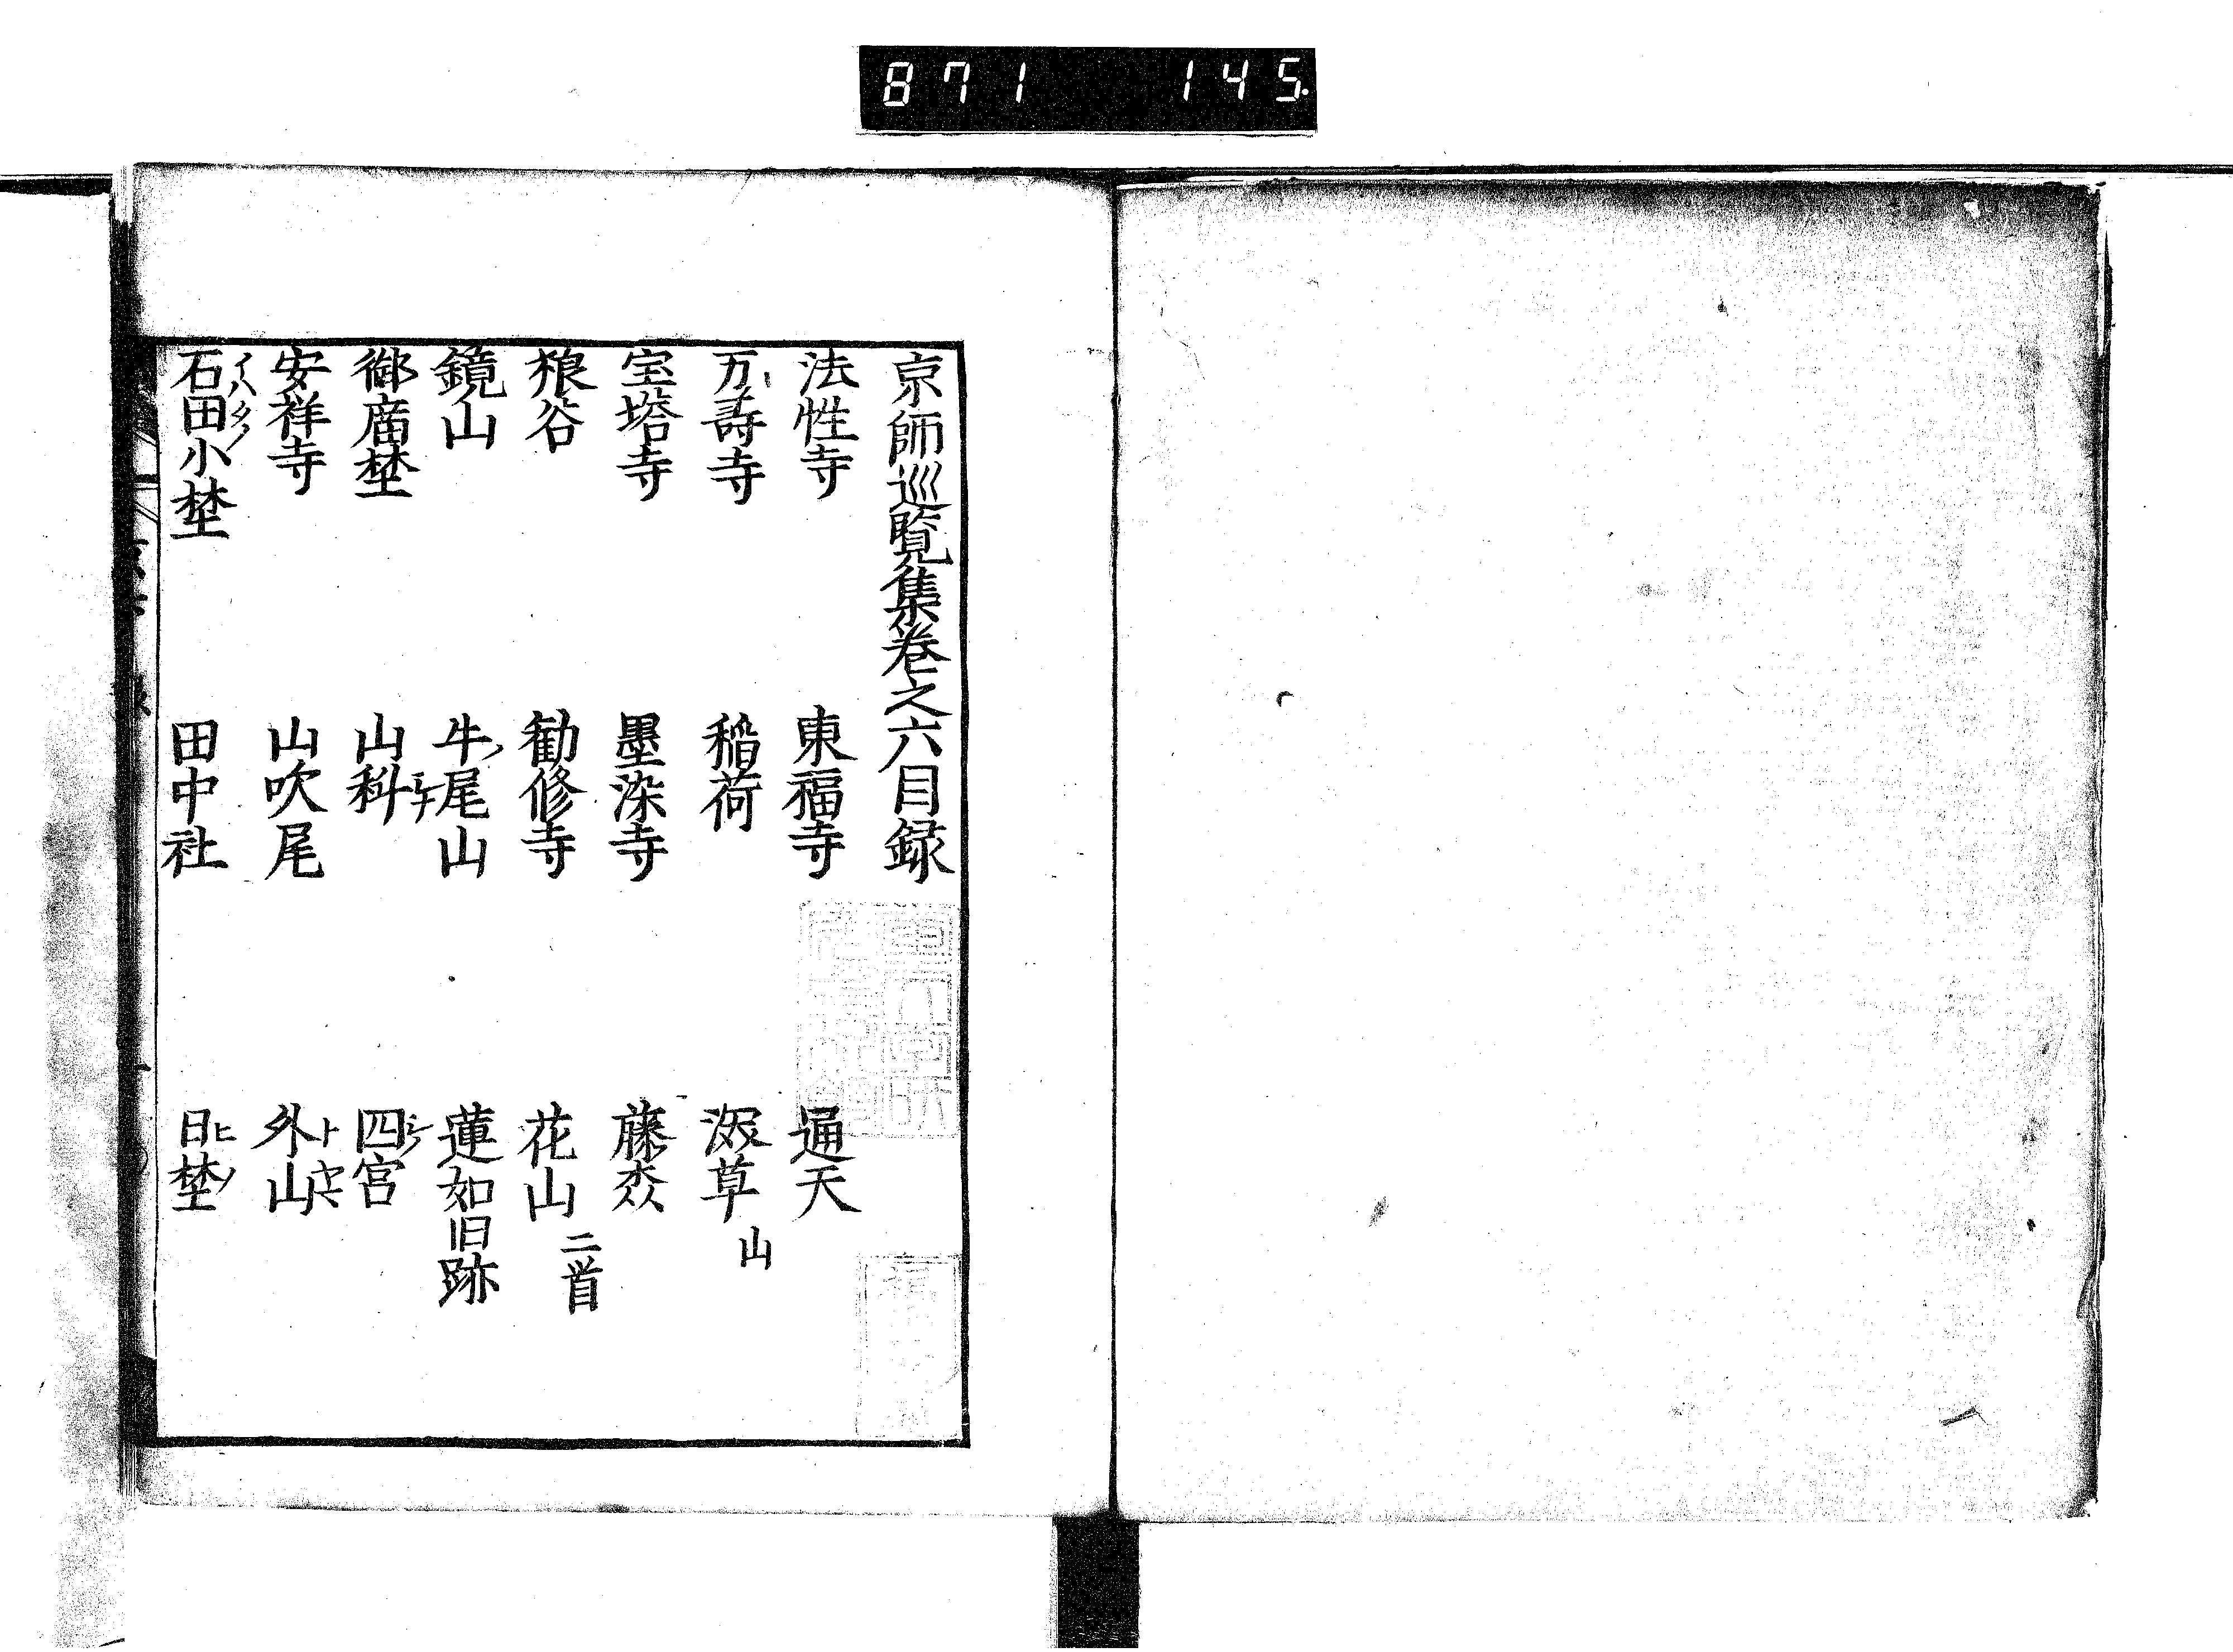 871 145
京師巡覧集巻之六目録
法性寺 東福寺 通天
万寿寺 稲荷 深草 山
宝塔寺 墨染寺 藤森
狼谷 勧修寺 花山 二首
鏡山 牛尾山 蓮如旧跡
御廟埜 山科 四宮
安祥寺 山吹尾 外山
石田小埜 田中社 日埜